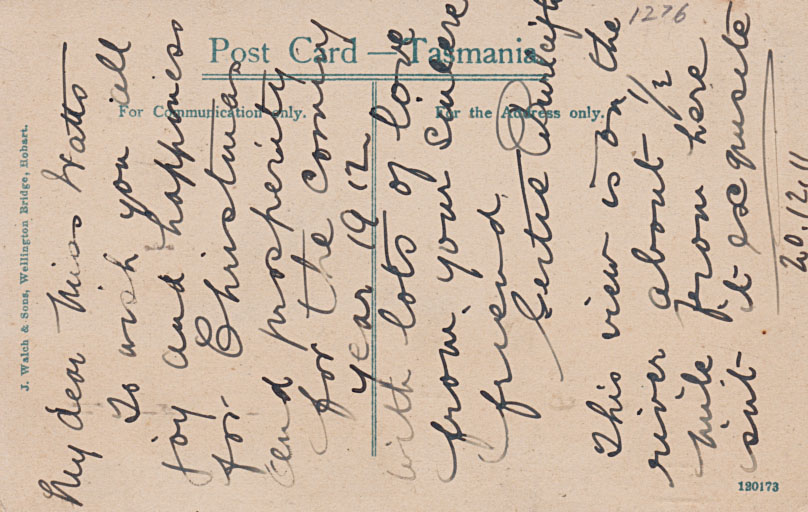 Post Card — Tasmania.
For Communication only.
For the Address only.
J. Walch & Sons, Wellington Bridge, Hobart.
120173
1276
My dear Miss Watts
To wish you all
joy and happiness
for Christmas
and prosperity
for the coming
year 1912
with lots of love
from your sincere
friend
Gertie
This view is on the
river about 1/2
mile from here
isnt it exquisite
20.12.11